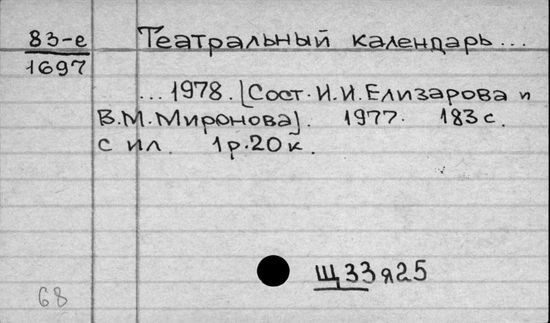 83-е Театральный календарь...
1697
...1978. [Сост. И.И.Елизарова и
В.М.Миронова]. 1977. 183 с.
с ил. 1р.20к.
Щ33я25
68